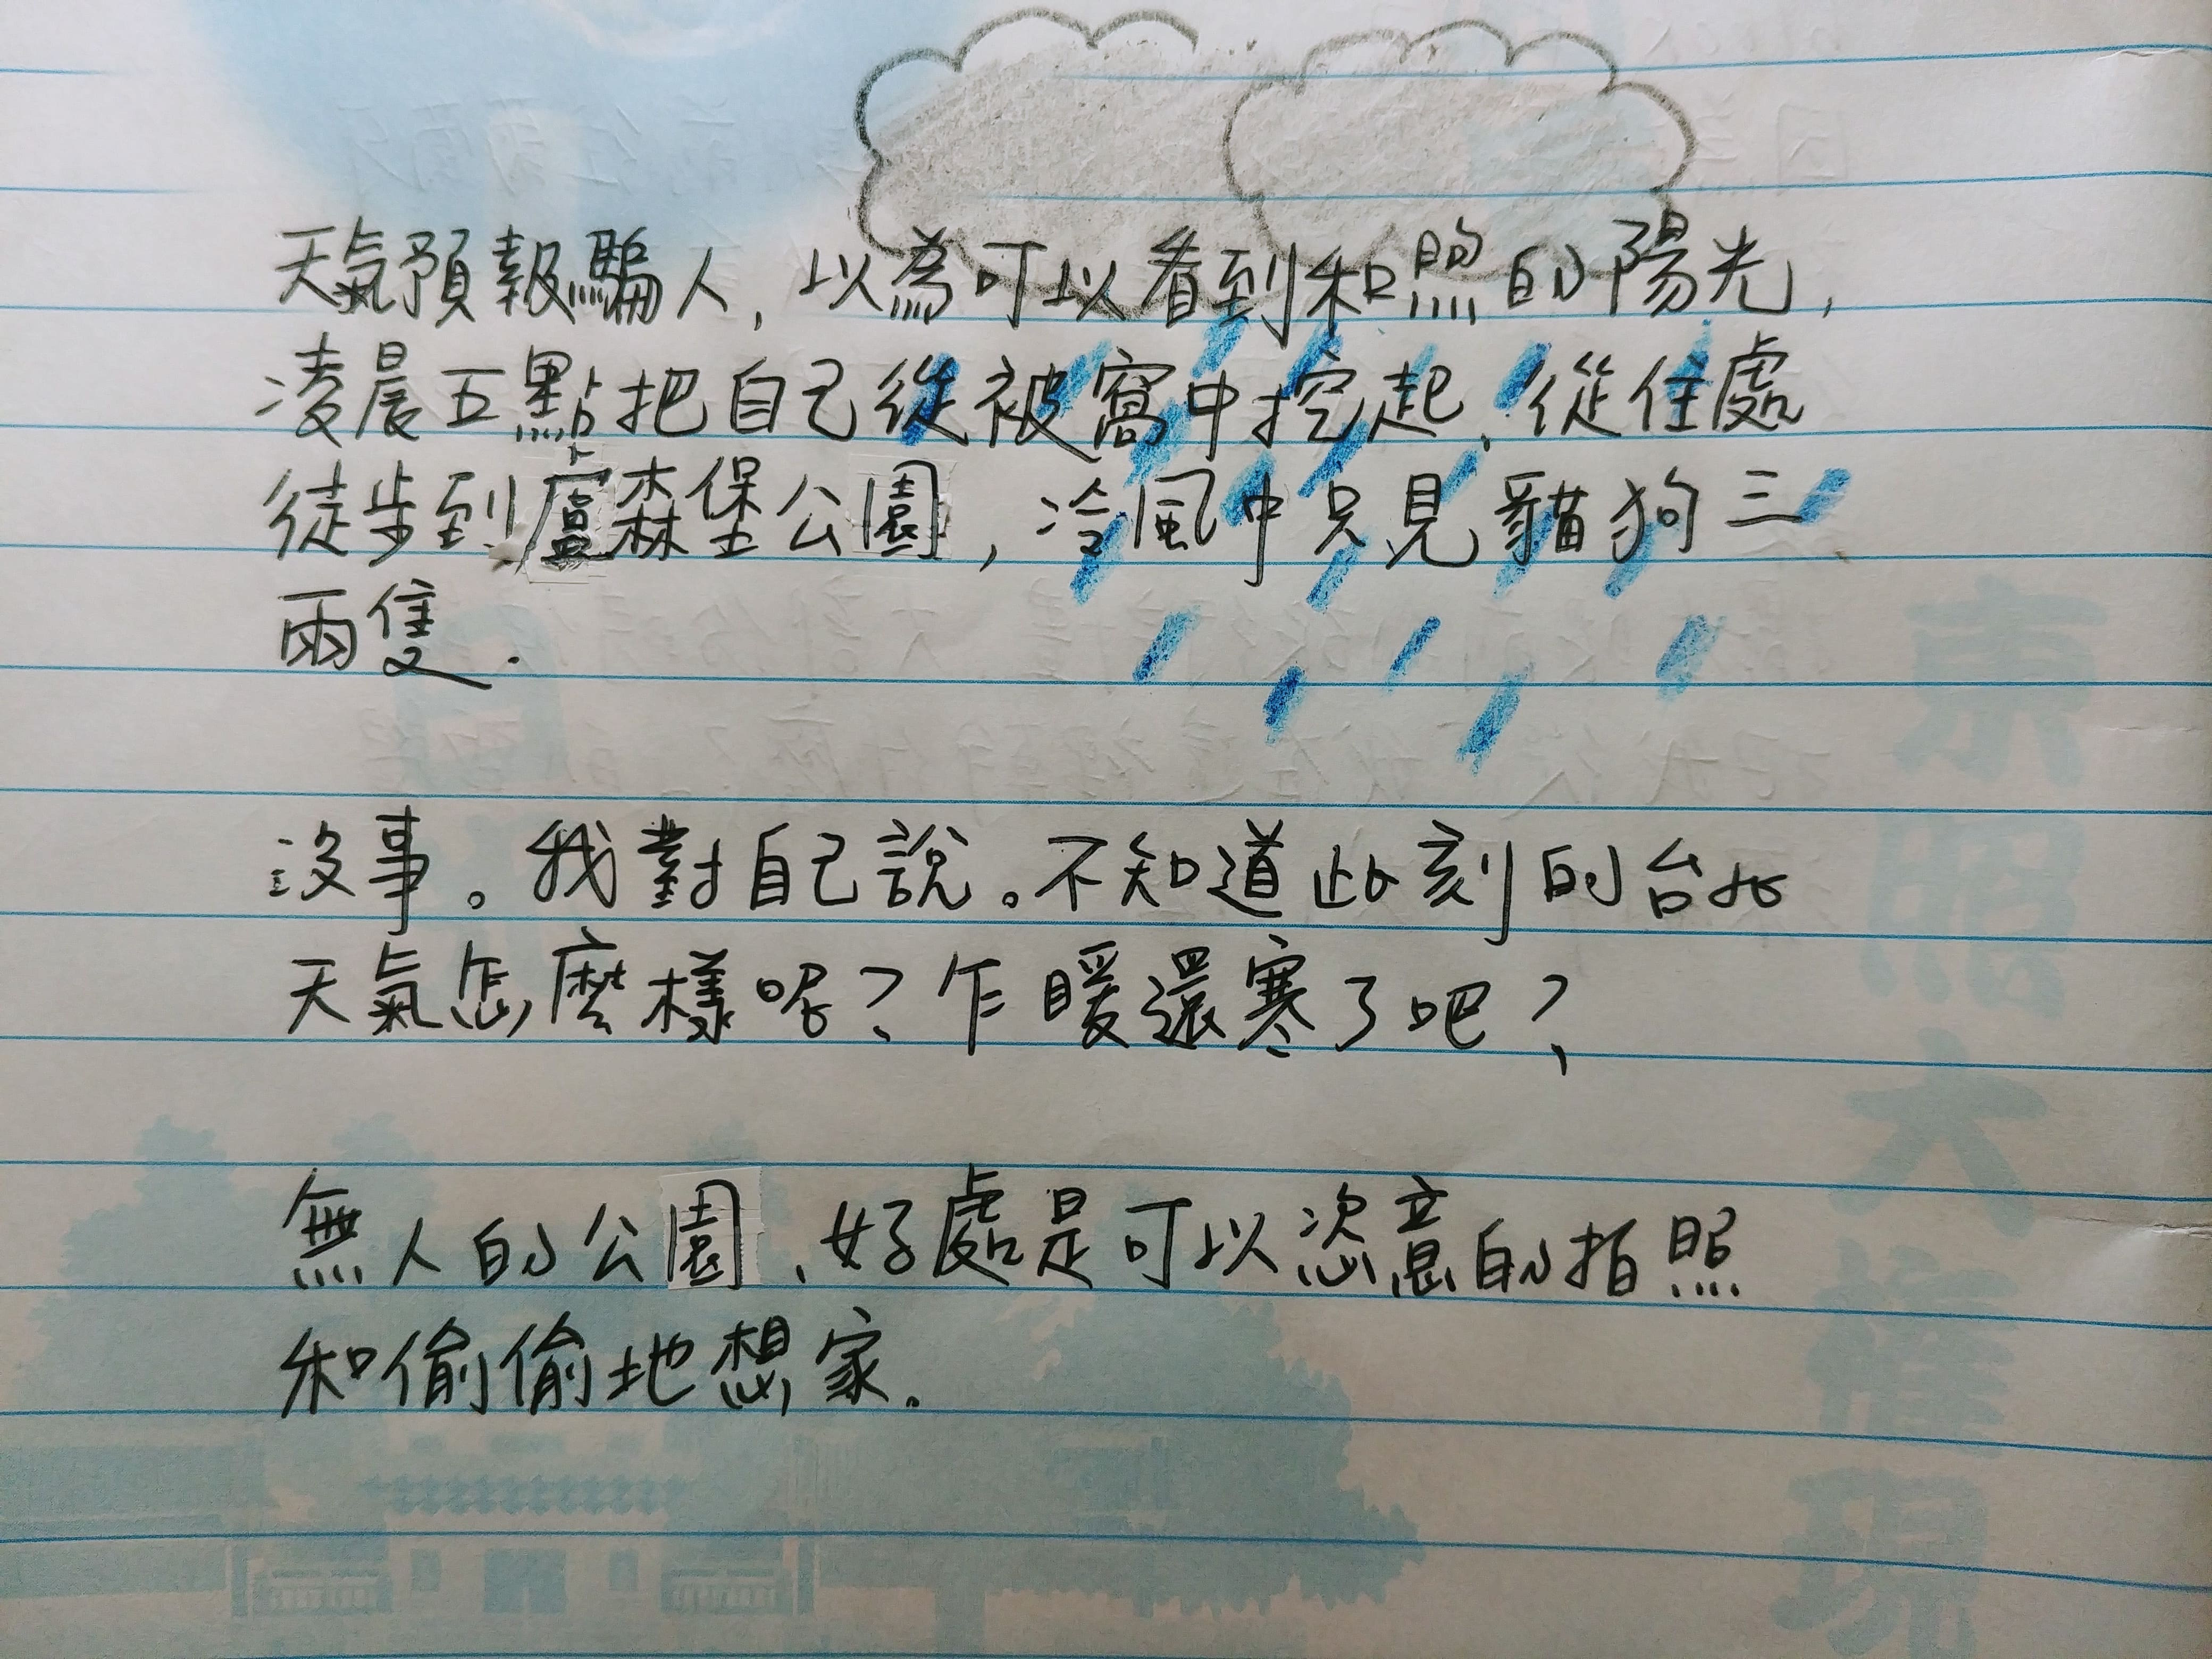 天氣預報騙人，以為可以看到和照的陽光，
凌晨五點把自己從被窩中挖起，從住處
徒步到盧森堡公園，冷風中只見貓狗三
兩隻.
沒事。我對自己說。不知道此刻的台北
天氣怎麼樣呢？乍暖還寒了吧？
無人的公園、好處是可以恣意的拍照
和偷偷地想家。